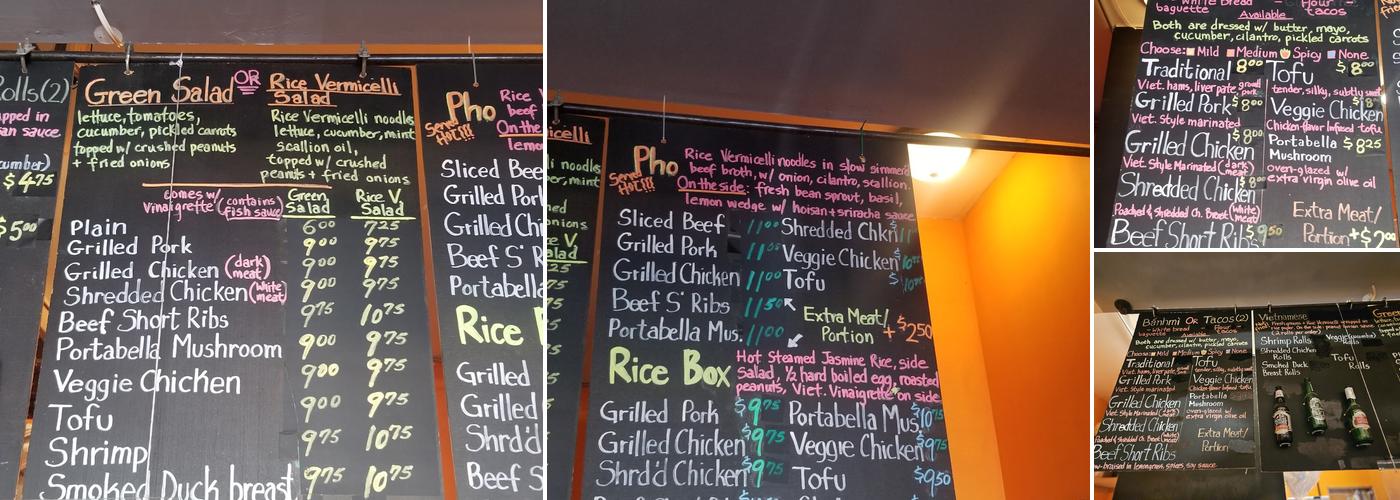 Rolls(2)
$4.75
$5.00
Green Salad OR Rice Vermicelli Salad
lettuce, tomatoes,
cucumber, pickled carrots
topped w/ crushed peanuts
+ fried onions
Rice Vermicelli noodles
lettuce, cucumber, mint
scallion oil,
topped w/ crushed
peanuts + fried onions
comes w/ Vinaigrette (contains fish sauce)
Green Salad
Rice V. Salad
Plain 6.00 7.25
Grilled Pork 9.00 9.75
Grilled Chicken (dark meat) 9.00 9.75
Shredded Chicken (white meat) 9.00 9.75
Beef Short Ribs 9.75 10.75
Portabella Mushroom 9.00 9.75
Veggie Chicken 9.00 9.75
Tofu 9.00 9.75
Shrimp 9.75 10.75
Smoked Duck breast 9.75 10.75
Pho
Served HOT!!!
Sliced Bee
Grilled Por
Grilled Ch
Beef S' R
Portabella
Rice
Grilled
Grilled
Shrd'd
Beef S
Pho
Served HOT!!!
Rice Vermicelli noodles in slow simmered
beef broth, w/ onion, cilantro, scallion.
On the side: fresh bean sprout, basil,
lemon wedge w/ hoisan + sriracha sauce
Sliced Beef 11.00 Shredded Chkn
Grilled Pork 11.00 Veggie Chicken
Grilled Chicken 11.00 Tofu
Beef S' Ribs 11.50
Portabella Mus. 11.00
Extra Meat/
Portion + $2.50
Rice Box
Hot Steamed Jasmine Rice, side
Salad, 1/2 hard boiled egg, roasted
peanuts, Viet. Vinaigrette on side
Grilled Pork $9.75 Portabella Mus.
Grilled Chicken $9.75 Veggie Chicken $9.75
Shrd'd Chicken $9.75 Tofu $9.50
White Bread baguette
Flour tacos
Available
Both are dressed w/ butter, mayo,
cucumber, cilantro, pickled carrots
Choose: Mild Medium Spicy None
Traditional $8.00
Viet. hams, liver pate, ground pork
Grilled Pork $8.00
Viet. Style marinated
Grilled Chicken $8.00
Viet. Style Marinated (dark meat)
Shredded Chicken $8.00
Poached & shredded Ch. Breast (white meat)
Beef Short Ribs $9.50
Tofu $8.00
tender, silky, subtly
Veggie Chicken
Chicken-flavor Infused tofu
Portabella Mushroom $8.25
oven-glazed w/
extra virgin olive oil
Extra Meat/
Portion + $2.00
Bánhmì Or Tacos(2)
white bread baguette
flour tacos
Both are dressed w/ butter, mayo,
cucumber, cilantro, pickled carrots
Choose: Mild Medium Spicy None
Traditional
Grilled Pork
Viet. Style marinated
Grilled Chicken
Viet. Style Marinated (dark meat)
Shredded Chicken
Beef Short Ribs
Tofu
Veggie Chicken
Portabella Mushroom
oven-glazed w/
extra virgin olive oil
Extra Meat/
Portion
Vietnamese
Shrimp Rolls
Shredded Chicken Rolls
Smoked Duck Breast Rolls
Tofu Rolls